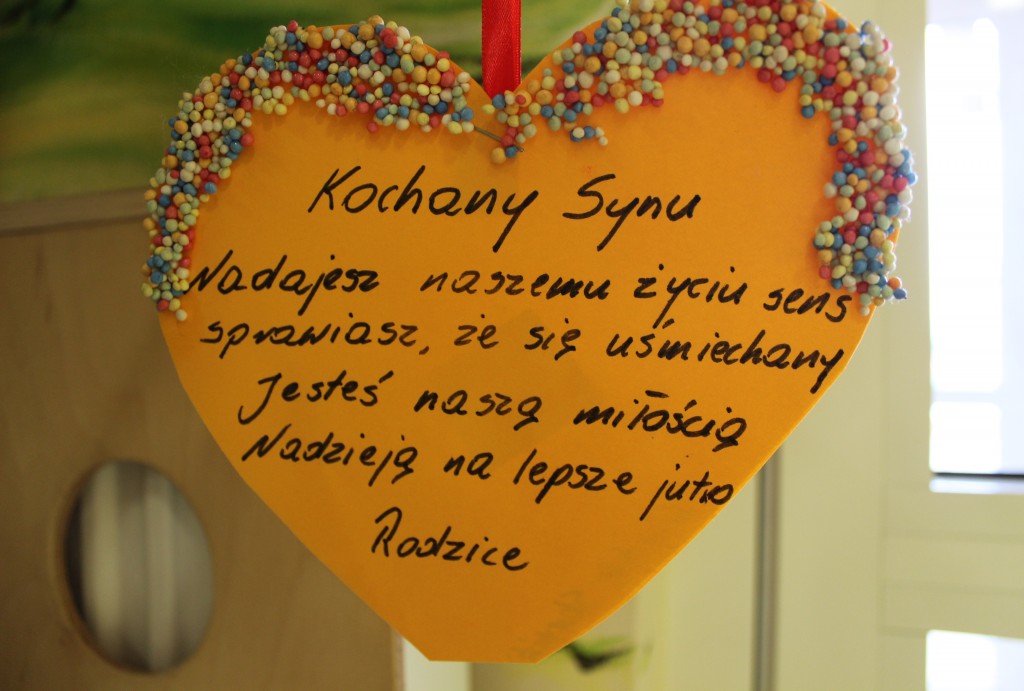 Kochany Synu
Nadajesz naszemu życiu sens
sprawiasz, że się uśmiechany
Jesteś naszą miłością
Nadzieją na lepsze jutro
Rodzice